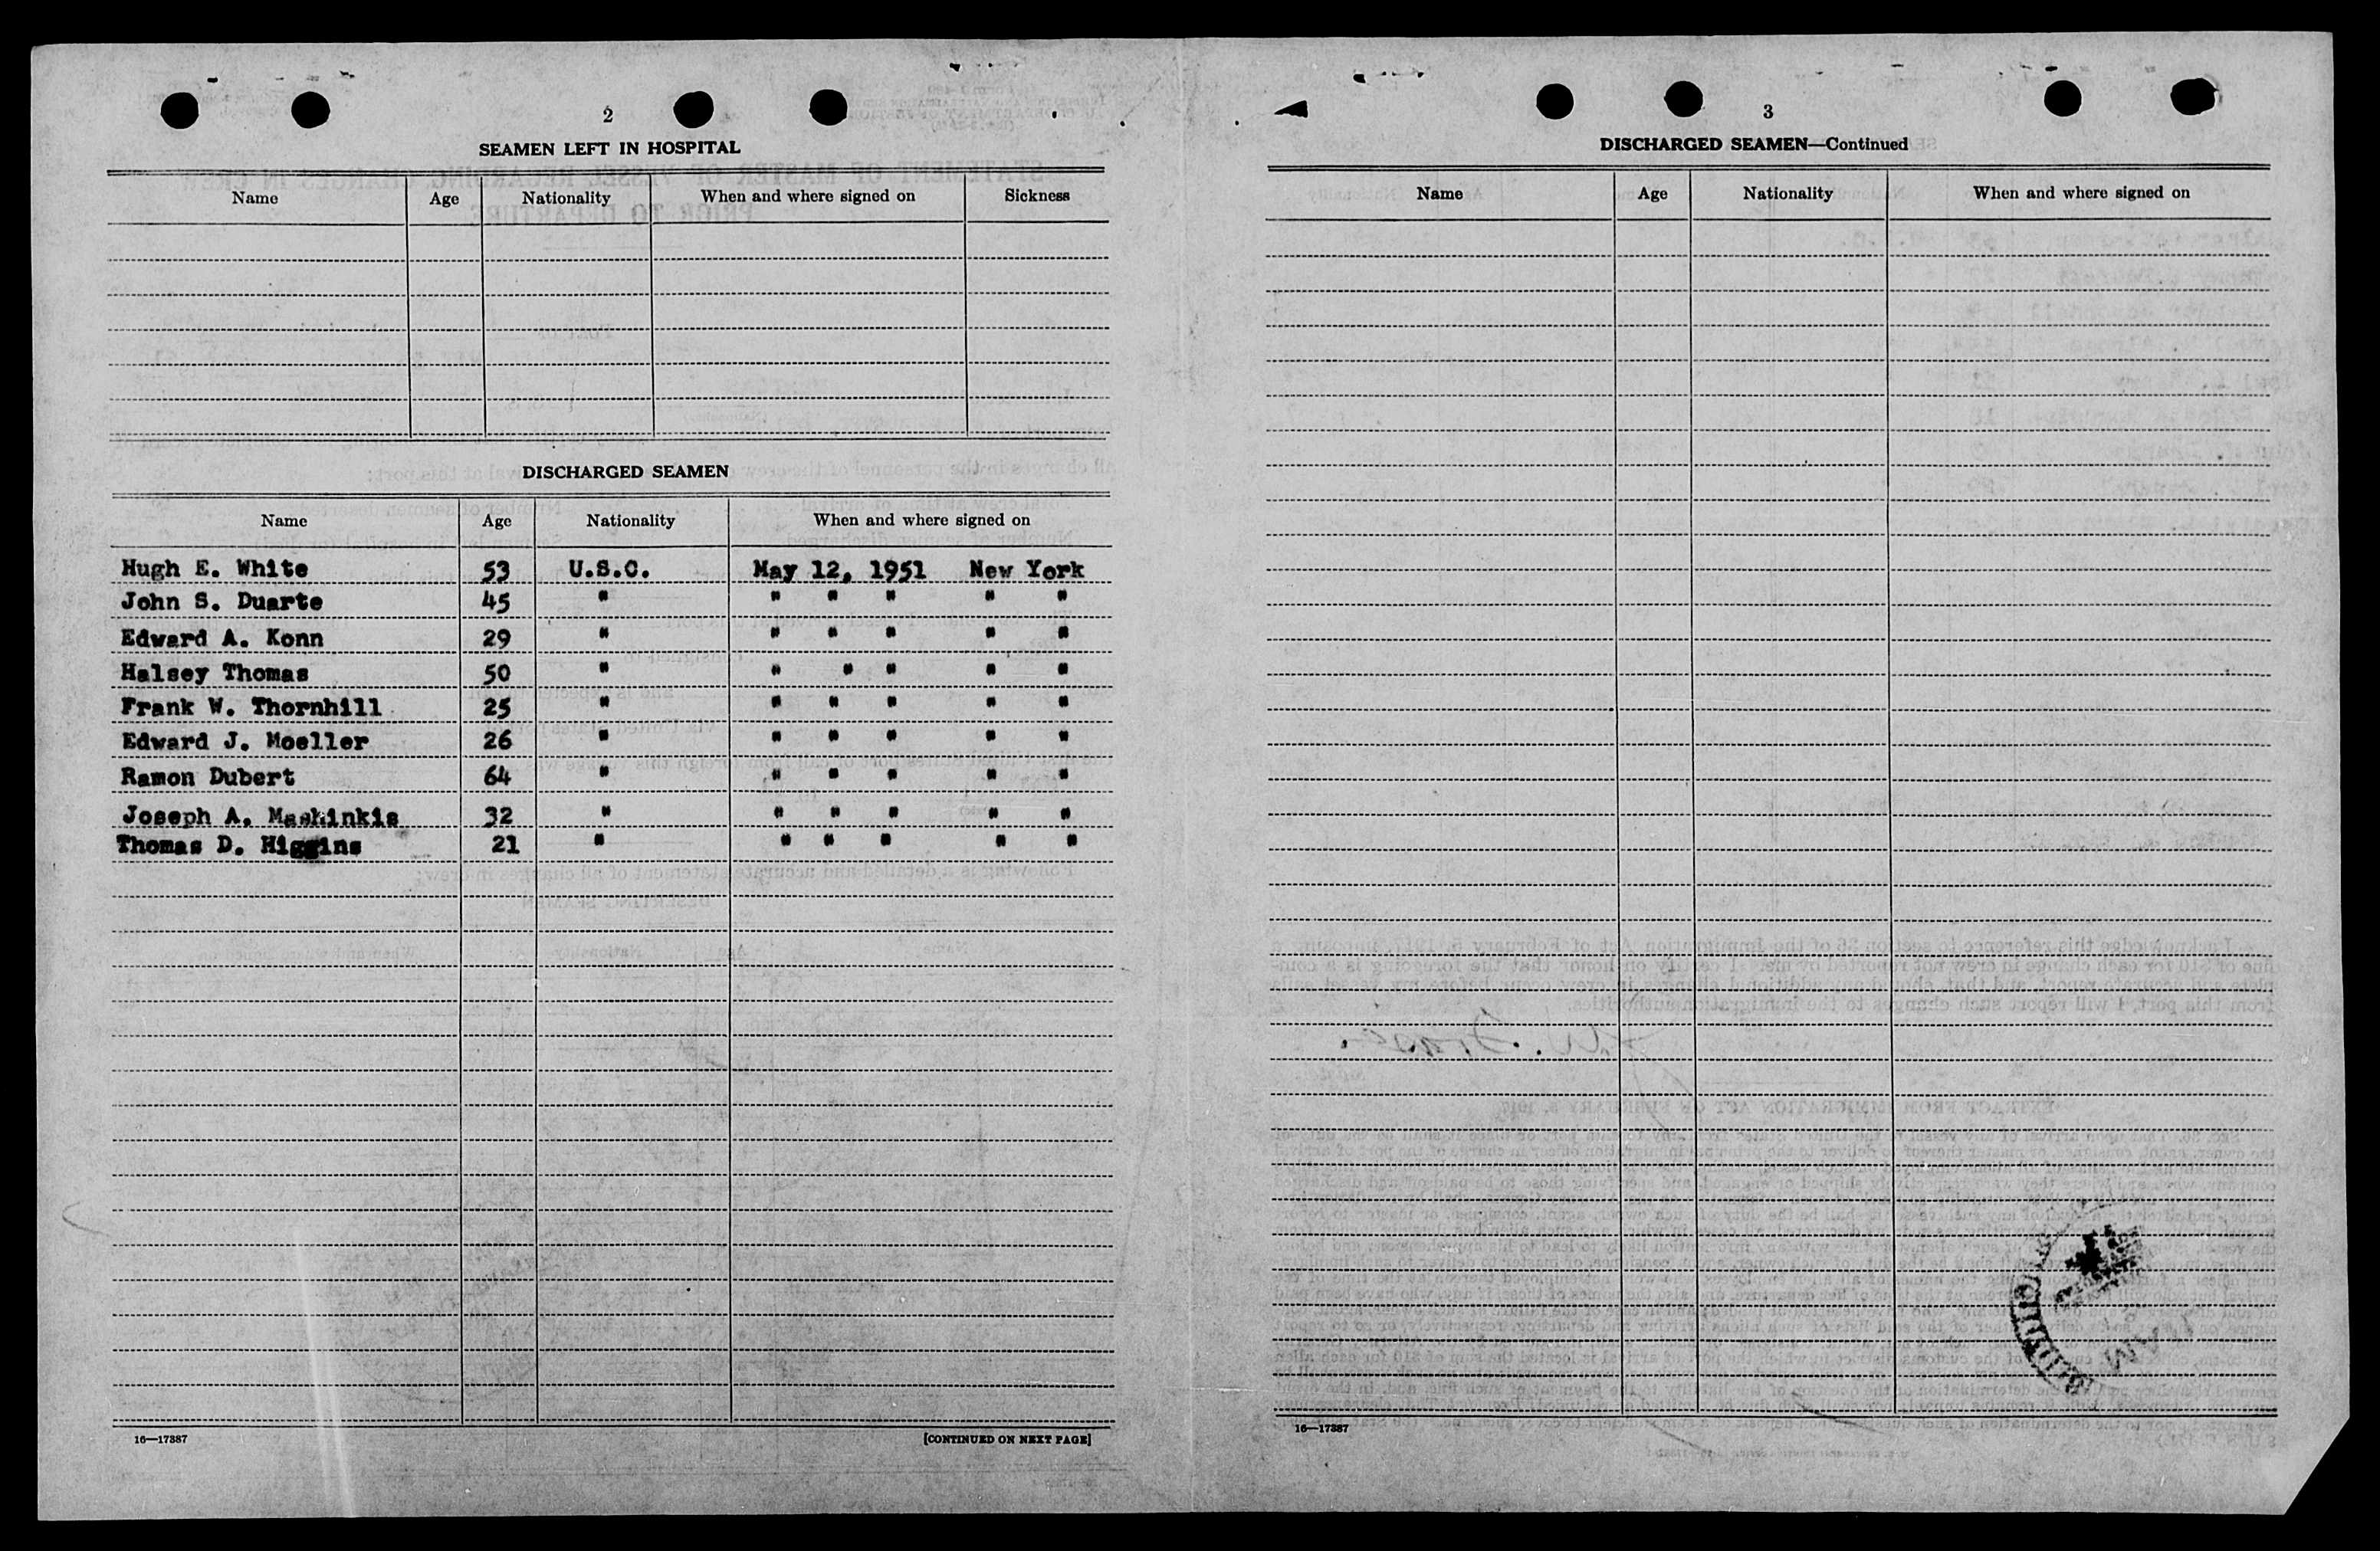 2
SEAMEN LEFT IN HOSPITAL
Name Age Nationality When and where signed on Sickness
DISCHARGED SEAMEN
Name Age Nationality When and where signed on
Hugh E. White 53 U.S.C. May 12, 1951 New York
John S. Duarte 45 " " " " " "
Edward A. Konn 29 " " " " " "
Halsey Thomas 50 " " " " " "
Frank W. Thornhill 25 " " " " " "
Edward J. Moeller 26 " " " " " "
Ramon Dubert 64 " " " " " "
Joseph A. Mashinkis 32 " " " " " "
Thomas D. Higgins 21 " " " " " "
16—17387 [CONTINUED ON NEXT PAGE]
3
DISCHARGED SEAMEN—Continued
Name Age Nationality When and where signed on
16—17387